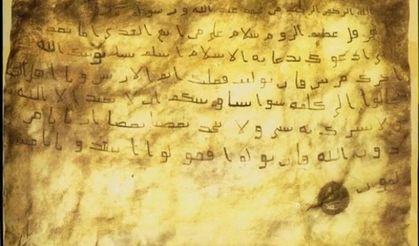 الله الرحمن الرحيم من محمد عبد الله ورسوله
هرقل عظيم الروم سلام على من اتبع الهدى اما بعد
ادعوك بدعايه الاسلام اسلم تسلم يوتك الله
اجرك مرتين فان توليت فعليك اثم الاريسين ويا اهل
تعالوا الى كلمه سوا بيننا وبينكم ان لا نعبد الا الله
ولا نشرك به شيا ولا يتخذ بعضنا بعضا اربابا من
دون الله فان تولوا فقولوا اشهدوا بانا مس
لمون